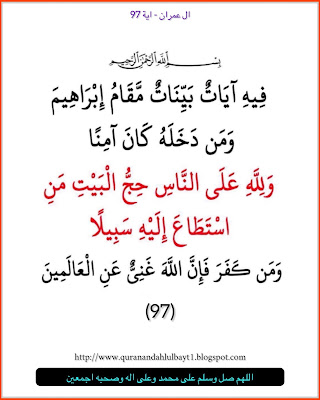 ال عمران - اية 97
بِسْمِ اللَّهِ الرَّحْمَٰنِ الرَّحِيمِ
فِيهِ آيَاتٌ بَيِّنَاتٌ مَّقَامُ إِبْرَاهِيمَ
وَمَن دَخَلَهُ كَانَ آمِنًا
وَلِلَّهِ عَلَى النَّاسِ حِجُّ الْبَيْتِ مَنِ
اسْتَطَاعَ إِلَيْهِ سَبِيلًا
وَمَن كَفَرَ فَإِنَّ اللَّهَ غَنِيٌّ عَنِ الْعَالَمِينَ
(97)
http://www.quranandahlulbayt1.blogspot.com
اللهم صل وسلم على محمد وعلى اله وصحبه اجمعين